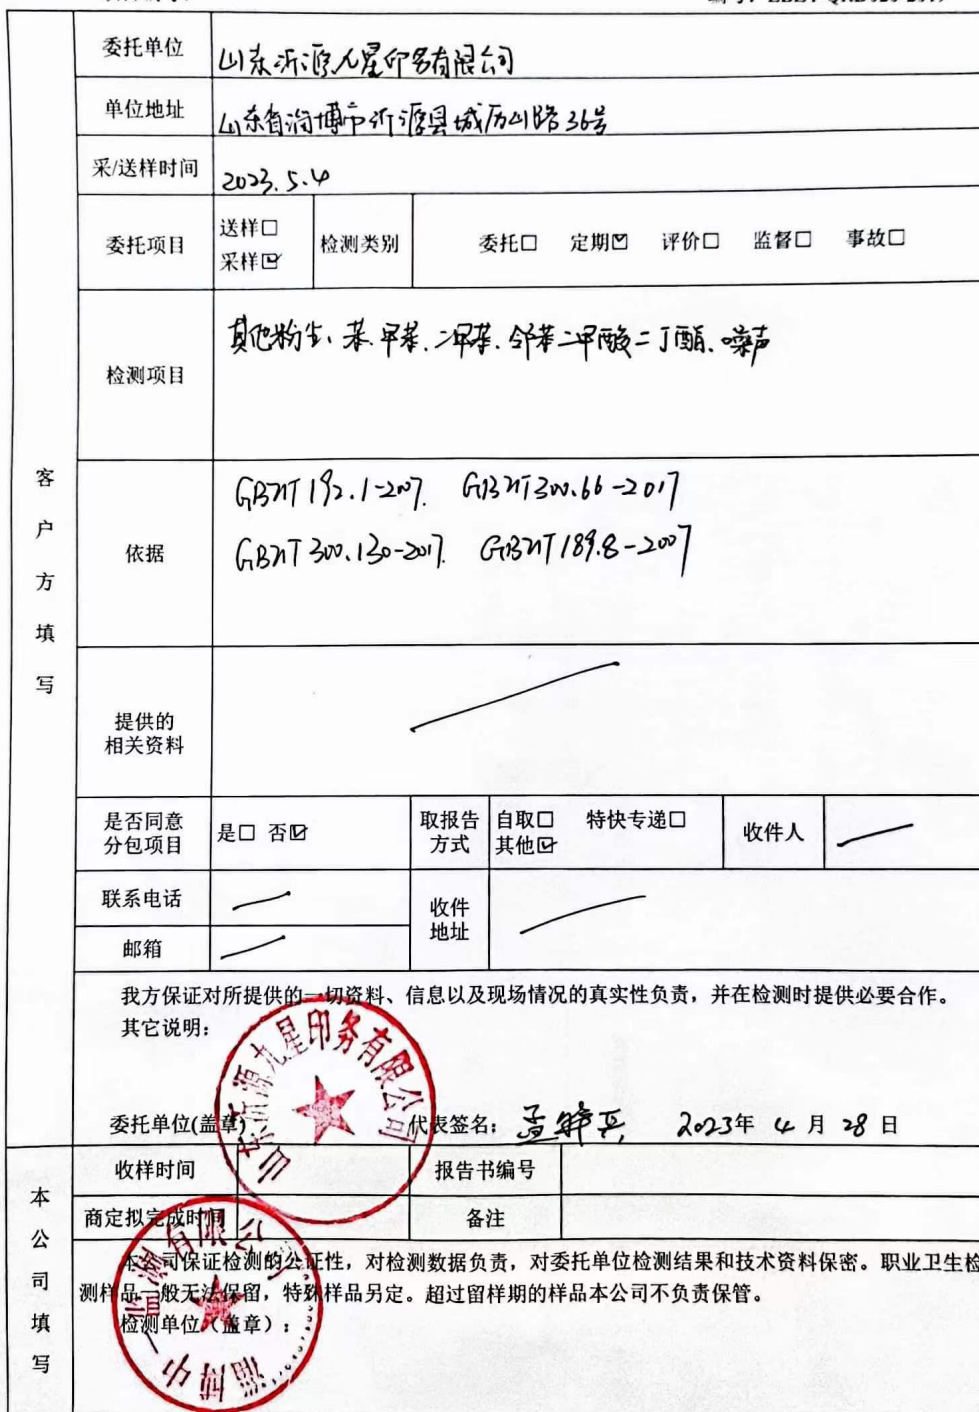 委托单位 山东沂源九星印务有限公司
单位地址 山东省淄博市沂源县城历山路36号
采/送样时间 2023.5.4
委托项目 送样□ 采样☑ 检测类别 委托□ 定期☑ 评价□ 监督□ 事故□
检测项目 其他粉尘、苯、甲苯、二甲苯、邻苯二甲酸二丁酯、噪声
依据 GBZ/T 192.1-2007. GBZ/T 300.66-2017
GBZ/T 300.130-2017. GBZ/T 189.8-2007
提供的
相关资料
是否同意
分包项目 是□ 否☑ 取报告
方式 自取□ 特快专递□
其他☑ 收件人
联系电话 收件
地址
邮箱
客户方填写
我方保证对所提供的一切资料、信息以及现场情况的真实性负责，并在检测时提供必要合作。
其它说明：
山东沂源九星印务有限公司
委托单位(盖章) 代表签名： 2023年 4 月 28 日
收样时间 报告书编号
商定拟完成时间 备注
本公司填写
本公司保证检测的公证性，对检测数据负责，对委托单位检测结果和技术资料保密。职业卫生检
测样品一般无法保留，特殊样品另定。超过留样期的样品本公司不负责保管。
检测单位（盖章）：